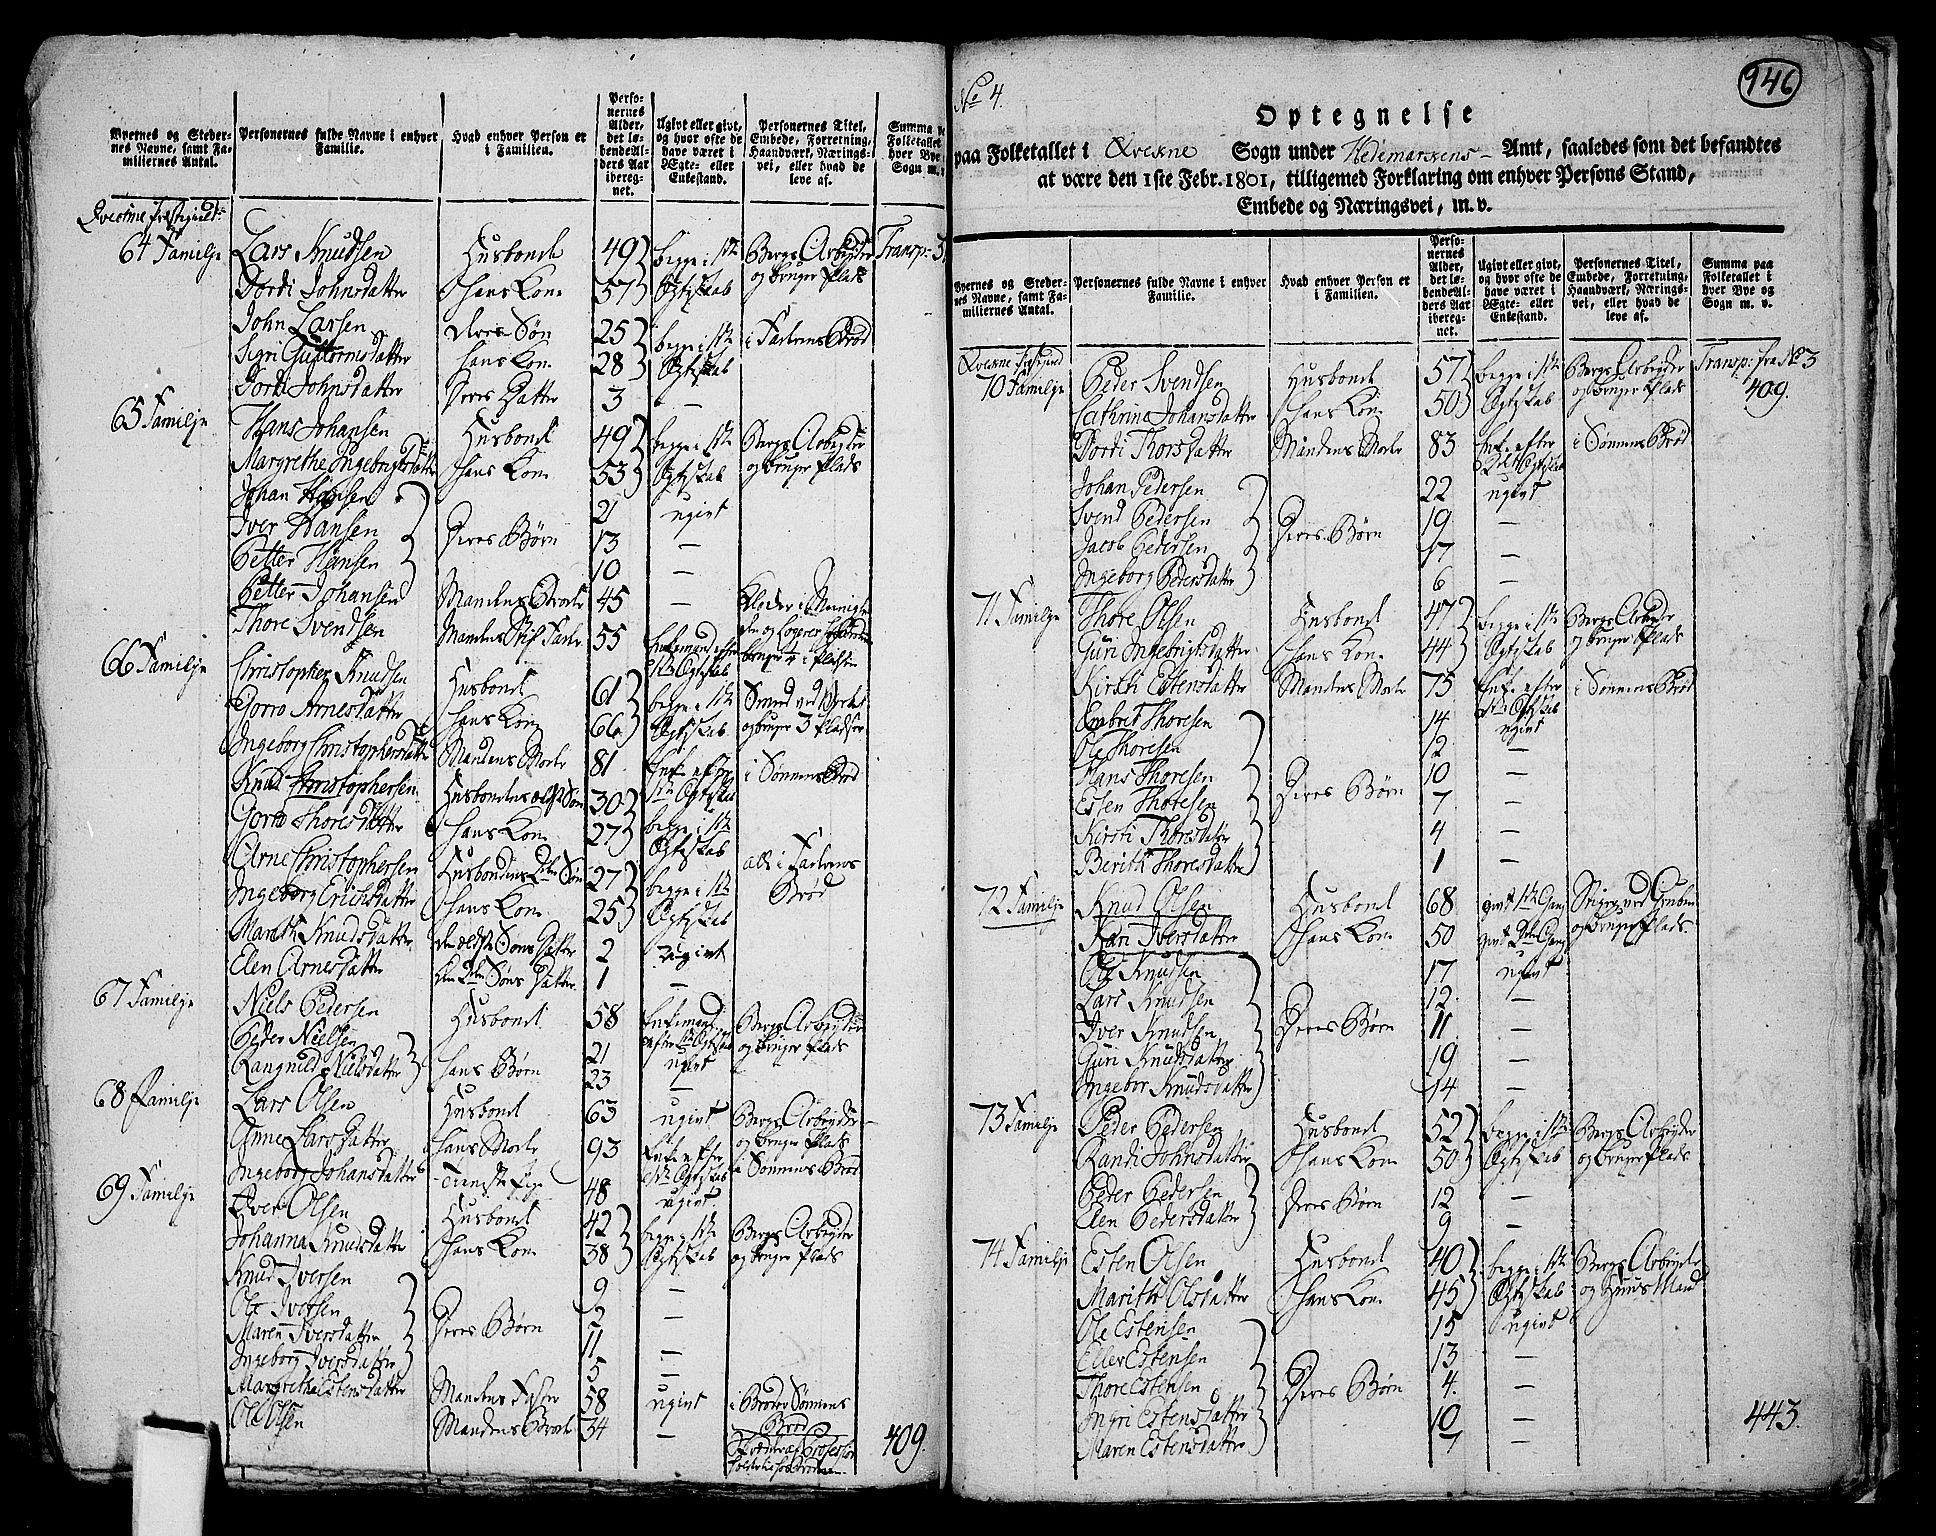 Byernes og Steder-
nes Navne, samt Fa-
miliernes Antal.
Personernes fulde Navne i enhver
Familie.
Hvad enhver Person er
i Familien.
Perso-
nernes
Alder,
det lø-
bende Al-
ders Aar
iberegnet.
Ugivt eller givt,
og hvor ofte de
have været i
Ægte- eller
Enkestand.
Personernes Titel,
Embede, Forretning,
Haandværk, Nærings-
vei, eller hvad de
leve af.
Summa
Folketallet
hver Bye
Sogn m. v.
Qvickne
64 Familje Lars Knudsen Husbond 49 begge i 1te Bergs Arbeyder Transp: 3
Dordi Johnsdatter Hans Kone 57 Ægteskab og bruger Plads
John Larsen deres Søn 25 begge i 1te i Faderens Brød
Sigri Guttormsdatter Hans Kone 28 Ægteskab
Dordi Johnsdatter Deres Datter 3 —
65 Familje Hans Johansen Husbond 49 begge i 1te Bergs Arbeyder
Margrethe Ingebrigtsdatter Hans Kone 53 Ægteskab og bruger Plads
Johan Hansen 21 ugivt
Iver Hansen Deres Børn 13 —
Petter Hansen 10 —
Petter Johansen Mandens Broder 45 —
Thore Svendsen Mandens Stif Fader 55 Enkemand efter 1te Ægteskab
66 Familje Christopher Knudsen Husbond 61 begge i 1te Smed ved Verket
Gorro Arnesdatter Hans Kone 66 Ægteskab og bruger 3 Pladser
Ingeborg Christophersdatter Mandens Moder 81 Enke efter 1te Ægteskab i Sønnens Brød
Knud Christophersen Husbondens ældste Søn 30 begge i 1te
Goro Thoresdatter Hans Kone 27 Ægteskab
Arne Christophersen Husbondens 2den Søn 27 begge i 1te alle i Faderens
Ingeborg Erichsdatter Hans Kone 25 Ægteskab Brød
Marith Knudsdatter den ældste Søns Datter 2 ugivt
Elen Arnesdatter den 2den Søns Datter 1 —
67 Familje Niels Pedersen Husbond 58 Enkemand efter 1te Ægteskab Bergs Arbeyder og bruger Plads
Peder Nielsen 21 ugivt
Rangnild Nielsdatter Hans Børn 23 —
68 Familje Lars Olsen Husbond 63 ugivt Bergs Arbeyder og bruger Plads
Anne Larsdatter Hans Moder 93 Enke efter 1te Ægteskab i Sønnens Brød
Ingeborg Johansdatter Tieneste Pige 48 ugivt
69 Familje Iver Olsen Husbond 42 begge i 1te Bergs Arbeyder
Johanna Knudsdatter Hans Kone 38 Ægteskab og bruger Plads
Knud Iversen 9 —
Ole Iversen Deres Børn 2 —
Maren Iversdatter 11 —
Ingeborg Iversdatter 5 —
Margrethe Estensdatter Mandens Faster 58 ugivt i Broder Sønnens Brød
Ole Olsen Mandens Broder 34 —
409.
No 4.
946
Optegnelse
paa Folketallet i Qvickne Sogn under Hedemarkens Amt, saaledes som det befandtes
at være den 1ste Febr. 1801, tilligemed Forklaring om enhver Persons Stand,
Embede og Næringsvei, m. v.
Byernes og Steder-
nes Navne, samt Fa-
miliernes Antal.
Personernes fulde Navne i enhver
Familie.
Hvad enhver Person er
i Familien.
Perso-
nernes
Alder,
det lø-
bende Al-
ders Aar
iberegnet.
Ugivt eller givt,
og hvor ofte de
have været i
Ægte- eller
Enkestand.
Personernes Titel,
Embede, Forretning,
Haandværk, Nærings-
vei, eller hvad de
leve af.
Summa paa
Folketallet i
hver Bye og
Sogn m. v.
Qvickne
70 Familje Peder Svendsen Husbond 57 begge i 1te Bergs Arbeyder Transp: fra No 3
Cathrina Johansdatter Hans Kone 50 Ægteskab og bruger Plads 409.
Dordi Thorsdatter Mandens Moder 83 Enke efter 2det Ægteskab i Sønnens Brød
Johan Pedersen 22 ugivt
Svend Pedersen 19 —
Jacob Pedersen Deres Børn 17 —
Ingeborg Pedersdatter 6 —
71 Familje Thore Olsen Husbond 47 begge i 1te Bergs Arbeyder
Guri Ingebrigtsdatter Hans Kone 44 Ægteskab og bruger Plads
Kirsti Estensdatter Mandens Moder 75 Enke efter 1te Ægteskab i Sønnens Brød
Embret Thoresen 14 ugivt
Ole Thoresen 12 —
Hans Thoresen 10 —
Esten Thoresen Deres Børn 7 —
Kirsti Thoresdatter 4 —
Berith Thoresdatter 1 —
72 Familje Knud Olsen Husbond 68 givt 1te Gang Stiger ved Gruben
Kari Iversdatter Hans Kone 50 givt 2den Gang og bruger Plads
Ole Knudsen 17 ugivt
Lars Knudsen 12 —
Iver Knudsen Deres Børn 11 —
Guri Knudsdatter 19 —
Ingebor Knudsdatter 14 —
73 Familje Peder Pedersen Husbond 52 begge i 1te Bergs Arbeyder
Randi Johnsdatter Hans Kone 50 Ægteskab og bruger Plads
Peder Pedersen Deres Børn 12 —
Elen Pedersdatter 9 —
74 Familje Esten Olsen Husbond 40 begge i 1te Bergs Arbeyder
Marith Olsdatter Hans Kone 45 Ægteskab og Huus Mand
Ole Estensen 15 ugivt
Eller Estensen 13 —
Thore Estensen Deres Børn 4 —
Ingri Estensdatter 10 —
Maren Estensdatter 7 —
443.